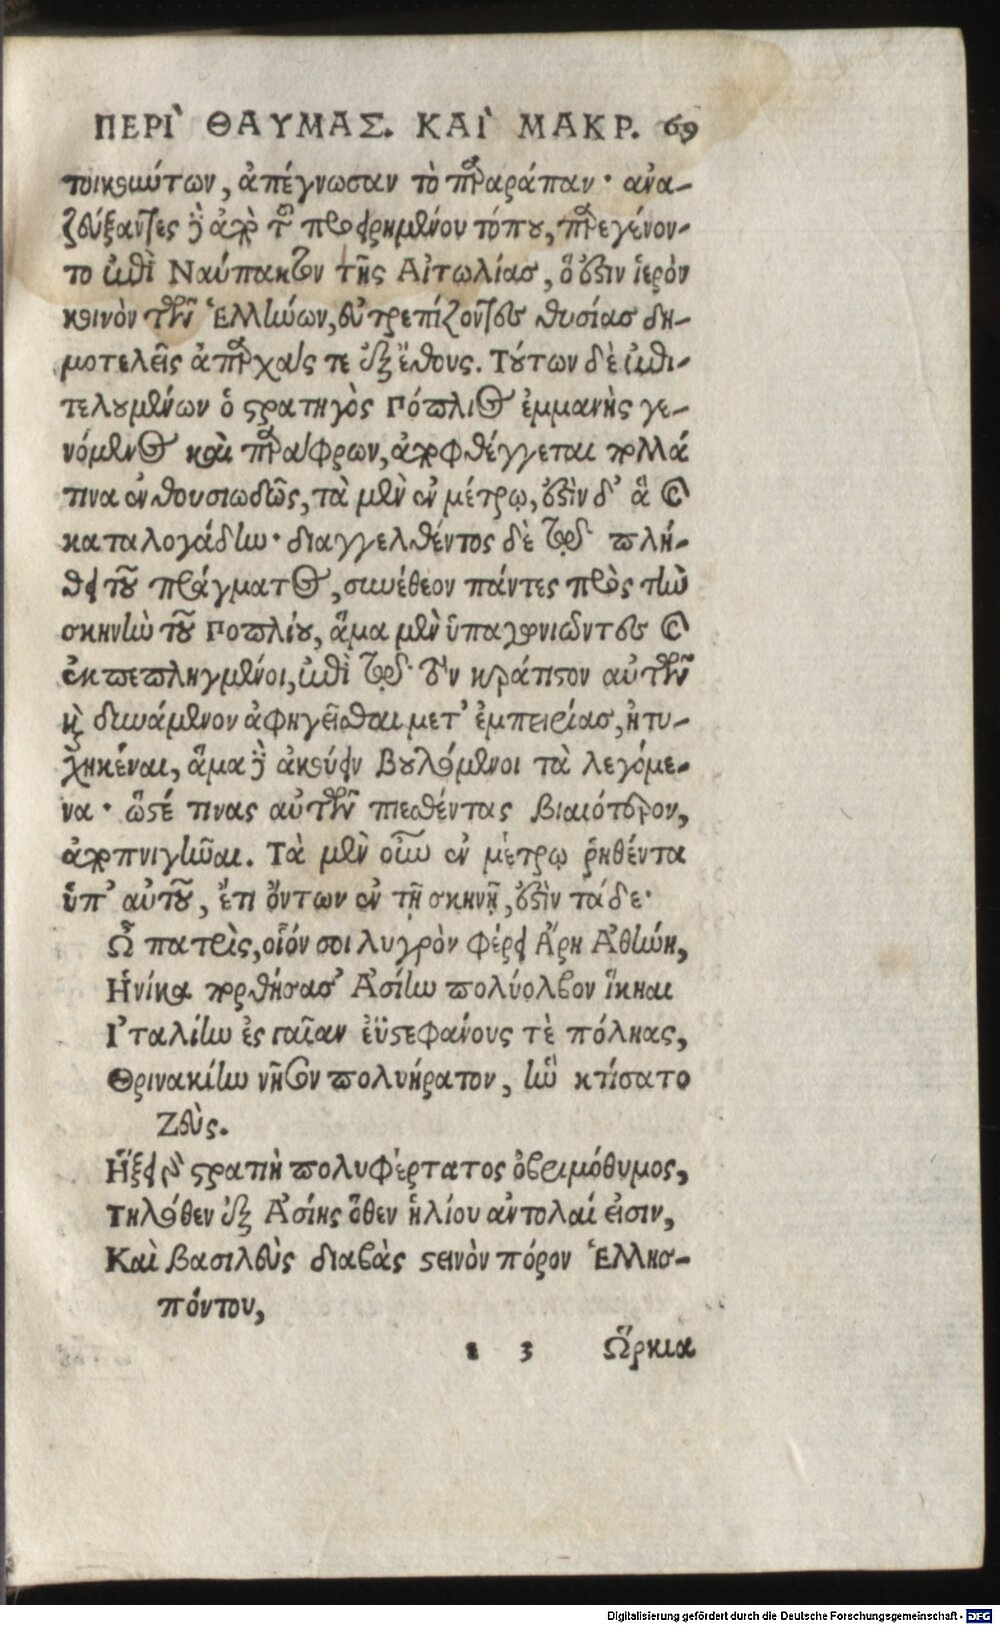 ΠΕΡΙ` ΘΑΥΜΑΣ. ΚΑΙ` ΜΑΚΡ. 69
τοικούτων, ἀπέγνωσαν τὸ παράπαν· ανα-
ζεύξαντες ἢ ἀπὸ τοῦ προειρημένου τόπου, παρεγένον-
το ἐπὶ Ναύπακτον τῆς Αἰτωλίας, ὅ ἐστιν ἱερὸν
κοινὸν τῶν Ἑλλήνων, εὐτρεπίζοντες θυσίας δη-
μοτελεῖς ἀπαρχάς τε ἐξ ἔθους. Τούτων δὲ ἐπι-
τελουμένων ὁ στρατηγὸς Πόπλιος ἐμμανὴς γε-
νόμενος καὶ παράφρων, ἀποφθέγγεται πολλά
τινα ἐνθουσιωδῶς, τὰ μὲν ἐν μέτρῳ, ἐστὶν δ' ἃ καὶ
καταλογάδην· διαγγελθέντος δὲ τοῖς πλή-
θει τοῦ πράγματος, συνέθεον πάντες πρὸς τὴν
σκηνὴν τοῦ Ποπλίου, ἅμα μὲν ὑπαγωνιῶντες καὶ
ἐκπεπληγμένοι, ἐπὶ τῷ τὸν κράτιστον αὐτῶν
καὶ δυνάμενον ἀφηγεῖσθαι μετ' ἐμπειρίας, ἠτυ-
χηκέναι, ἅμα δὲ ἀκούειν βουλόμενοι τὰ λεγόμε-
να· ὥστέ τινας αὐτῶν πιεσθέντας βιαιότερον,
ἀποπνιγῆναι. Τὰ μὲν οὖν ἐν μέτρῳ ῥηθέντα
ὑπ' αὐτοῦ, ἔτι ὄντων ἐν τῇ σκηνῇ, ἐστὶν τάδε·
Ὦ πατρὶς, οἷόν σοι λυγρὸν φέρει Ἄρη Ἀθήνη,
Ἡνίκα πορθήσασ' Ἀσίην πολύολβον ἵκηαι
Ἰταλίην ἐς γαῖαν ἐϋστεφάνους τὲ πόληας,
Θρινακίην νῆσον πολυήρατον, ἣν κτίσατο
Ζεύς.
Ἥξει γὰρ στρατιὴ πολυφέρτατος ὀβριμόθυμος,
Τηλόθεν ἐξ Ἀσίης ὅθεν ἡλίου ἀντολαί εἰσιν,
Καὶ βασιλεὺς διαβὰς στεινὸν πόρον Ἑλλησ-
πόντου,
ι 3 Ὥρκια
Digitalisierung gefördert durch die Deutsche Forschungsgemeinschaft - DFG